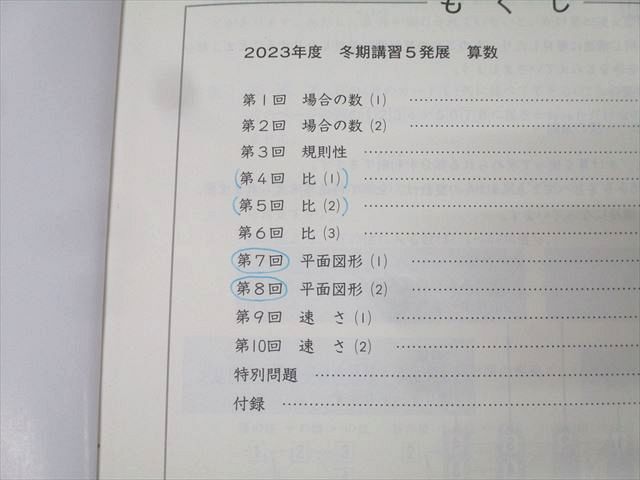 もくじ
2023年度 冬期講習5発展 算数
第1回 場合の数(1)
第2回 場合の数(2)
第3回 規則性
第4回 比(1)
第5回 比(2)
第6回 比(3)
第7回 平面図形(1)
第8回 平面図形(2)
第9回 速さ(1)
第10回 速さ(2)
特別問題
付録